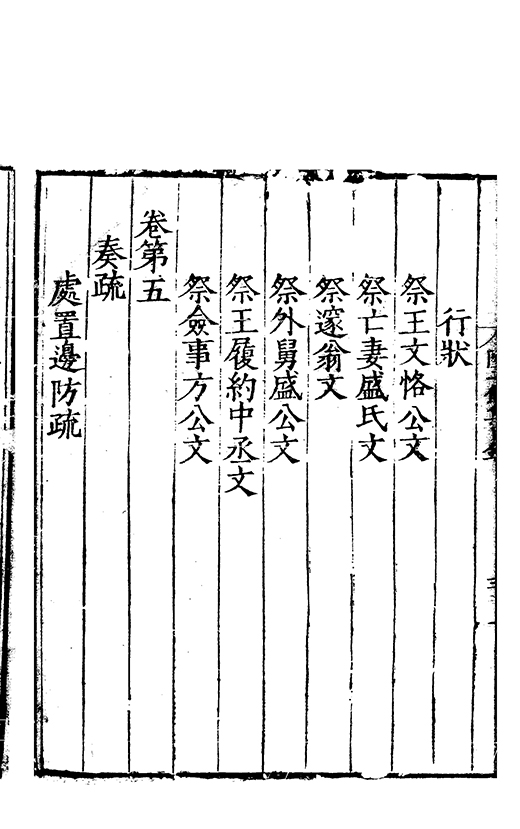 行狀
祭王文恪公文
祭亡妻盛氏文
祭邃翁文
祭外舅盛公文
祭王履約中丞文
祭僉事方公文
卷第五
奏疏
處置邊防疏